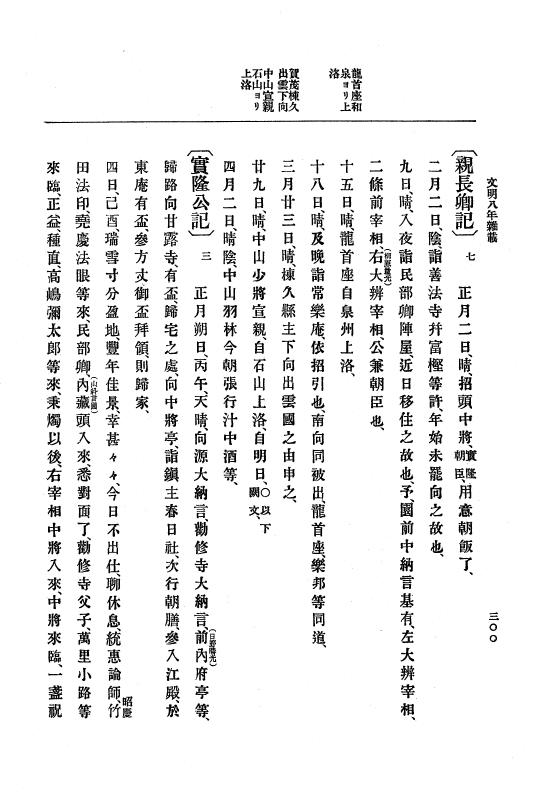 文明八年雑載
三〇〇
龍首座和
泉ヨリ上
洛
賀茂棟久
出雲下向
中山宣親
石山ヨリ
上洛
〔親長卿記〕七 正月二日、晴、招頭中將、實隆朝臣、用意朝飯了、
二月二日、陰、詣善法寺幷富樫等許、年始未罷向之故也、
九日、晴、入夜詣民部卿陣屋、近日移住之故也、予、園前中納言基有、左大辨宰相、
二條前宰相、右大辨宰相、公兼朝臣也、
十五日、晴、龍首座自泉州上洛、
十八日、晴、及晚詣常樂庵、依招引也、南向同被出、龍首座、樂邦等同道、
三月廿三日、晴、棟久縣主下向出雲國之由申之、
廿九日、晴、中山少將宣親、自石山上洛、自明日、〇以下闕文、
四月二日、晴陰、中山羽林今朝張行汁中酒等、
〔實隆公記〕三 正月朔日、丙午、天晴、向源大納言、勸修寺大納言、前內府亭等、(日野勝光)
歸路向甘露寺、有盃、歸宅之處向中將亭、詣鎭主春日社、次行朝膳、參入江殿、於
東庵有盃、參方丈御盃拜領、則歸家、
四日、己酉、瑞雪寸分盈地、豐年佳景、幸甚々々、今日不出仕、聊休息、統惠論師、竹
田法印昭慶、堯慶法眼等來、民部卿、內藏頭入來、悉對面了、勸修寺父子、萬里小路等
來臨、正益、種直、高嶋彌太郎等來、秉燭以後、右宰相中將入來、中將來臨、一盞祝